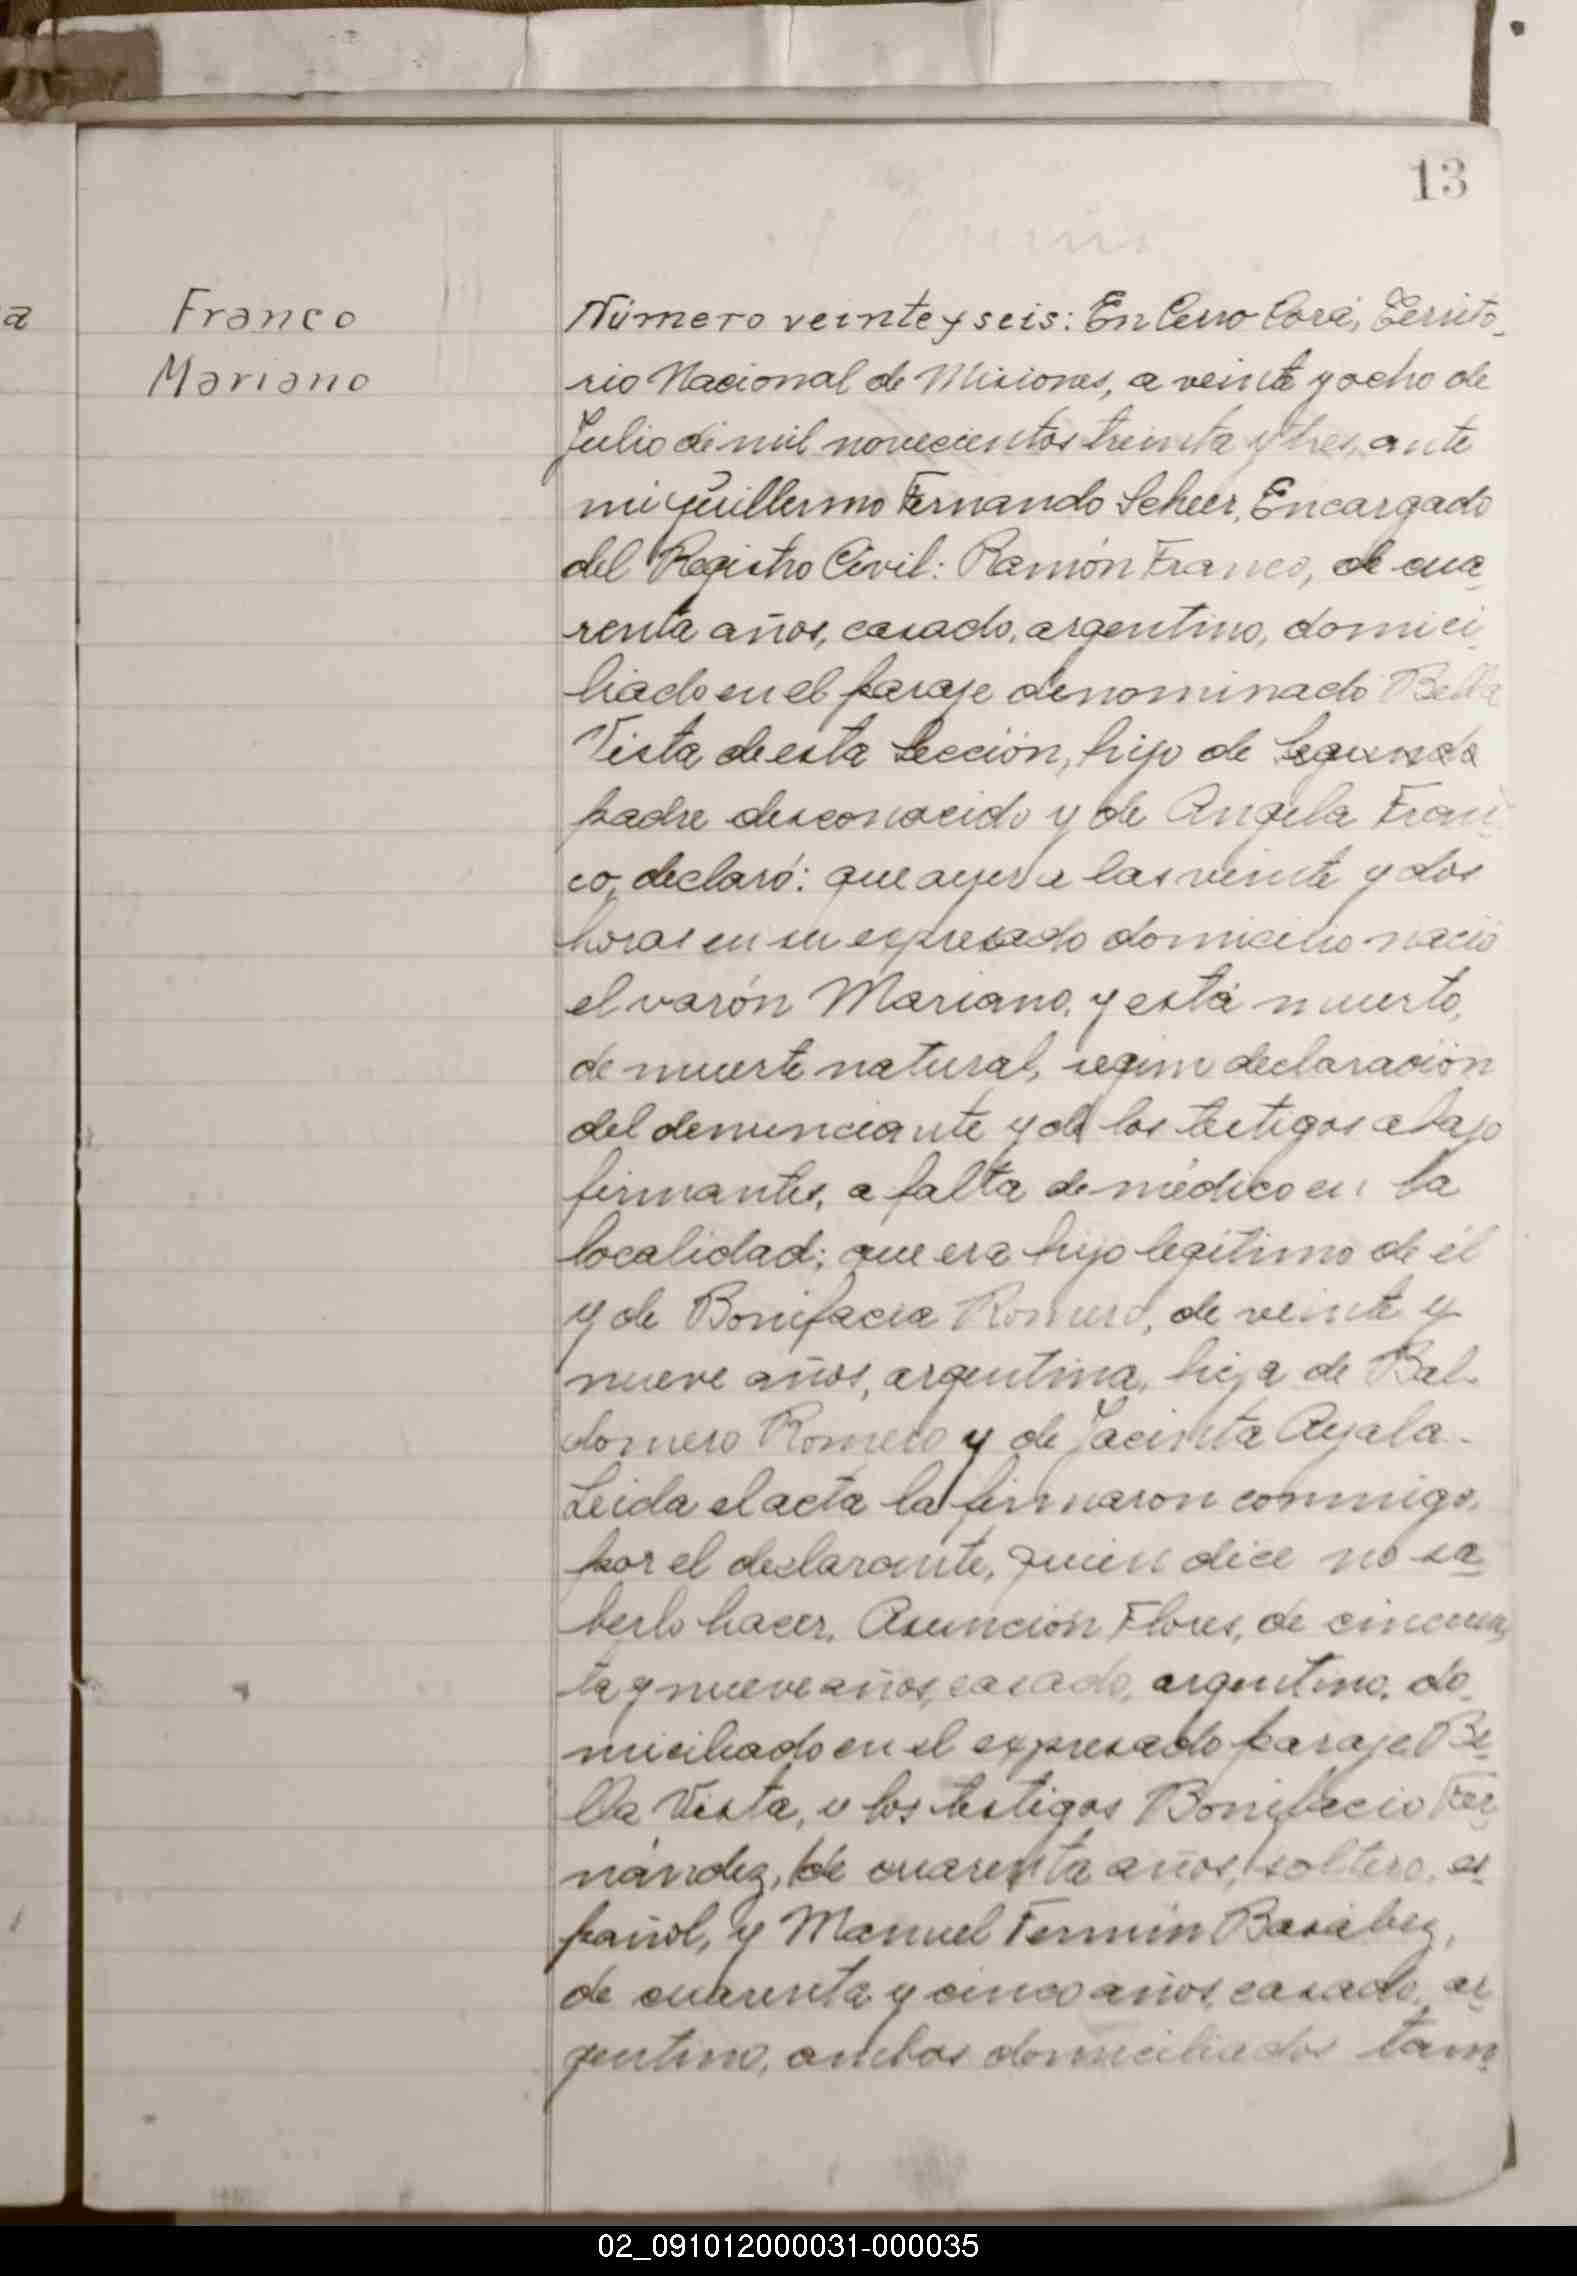 13
a
Franco
Mariano
Número veinte y seis: En Cerro Corá, Territo-
rio Nacional de Misiones, a veinte y ocho de
Julio de mil novecientos treinta y tres, ante
mi Guillermo Fernando Scheer, Encargado
del Registro Civil: Ramón Franco, de cua-
renta años, casado, argentino, domici-
liado en el paraje denominado Bella
Vista de esta Sección, hijo de
padre desconocido y de Angela Fran-
co, declaró: que ayer a las veinte y dos
horas en su expresado domicilio nació
el varón Mariano, y está muerto,
de muerte natural, segun declaración
del denunciante y de los testigos abajo
firmantes, a falta de médico en la
localidad; que era hijo legítimo de él
y de Bonifacia Romero, de veinte y
nueve años, argentina, hija de Bal-
domero Romero y de Jacinta Ayala.-
Leida el acta la firmaron conmigo,
por el declarante, quien dice no sa-
berlo hacer, Asunción Flores, de cincuen-
ta y nueve años, casado, argentino, do-
miciliado en el expresado paraje Be-
lla Vista, y los testigos Bonifacio Fer-
nández, de cuarenta años, soltero, es-
pañol, y Manuel Fermín Basábez,
de cuarenta y cinco años, casado, ar-
gentino, ambos domiciliados tam-
02_091012000031-000035